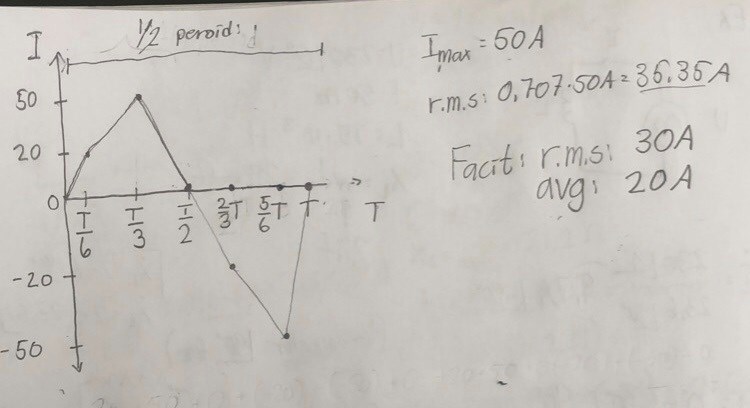 1/2 peroid:
I
50
20
0
-20
-50
T/6
T/3
T/2
2/3 T
5/6 T
T
T
I max = 50A
r.m.s: 0,707·50A = 35,35A
Facit: r.m.s: 30A
avg: 20A